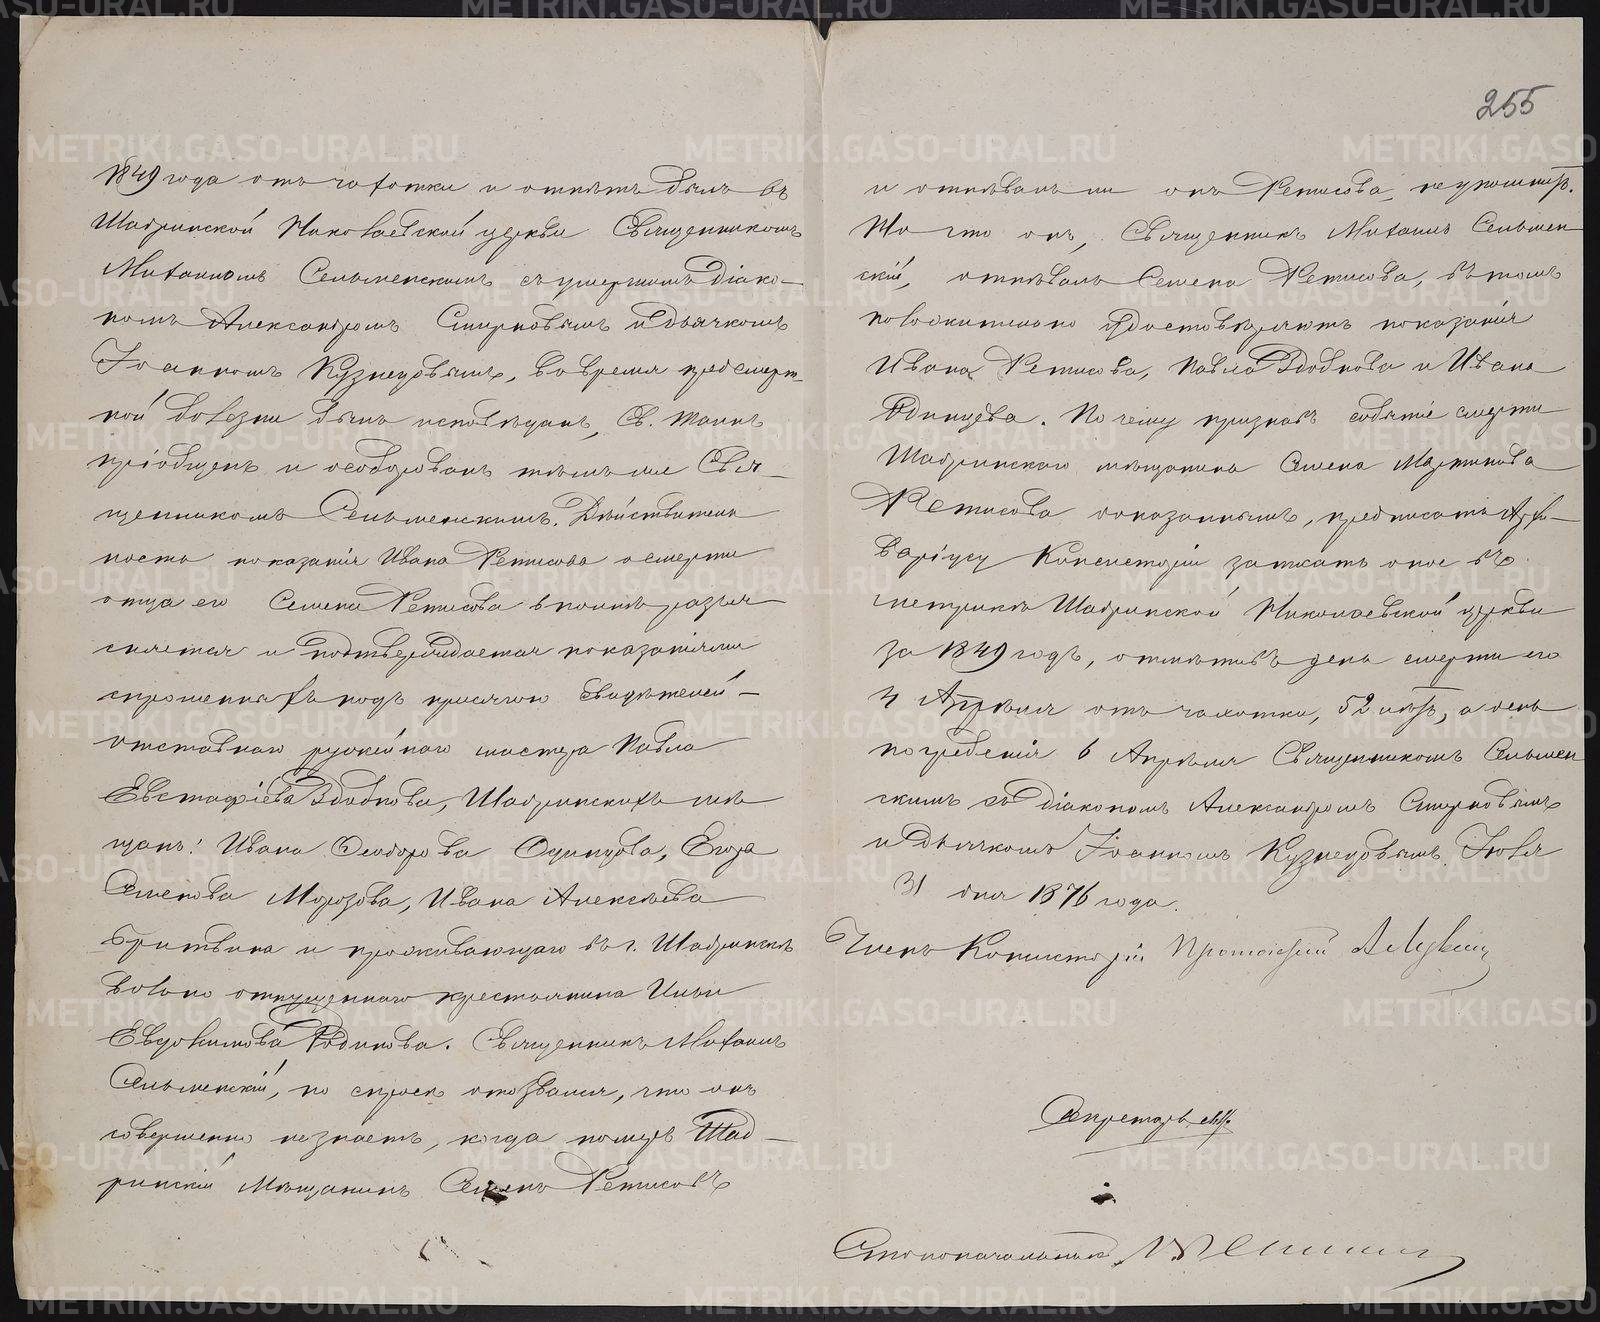 255
1849 года отъ чахотки и отпѣтъ былъ въ
Шадринской Николаевской церкви Священникомъ
Михаиломъ Сельменскимъ съ умершимъ Діако-
номъ Александромъ Смирновымъ и дьячкомъ
Іоанномъ Кузнецовымъ, во время предсмерт-
ной болезни былъ исповѣданъ, Св. Таинъ
пріобщенъ и особорованъ тѣмъ же Свя-
щенникомъ Сельменскимъ. Дѣйствитель-
ность показанія Ивана Ретисова о смерти
отца его Семена Ретисова вполнѣ разъя-
сняется и подтверждается показаніями
спрошенныхъ подъ присягою свидѣтелей -
отставнаго мастера Павла
Евстафіева Здобнова, Шадринскихъ мѣ-
щанъ: Ивана Ѳеодорова Одинцова, Егора
Семенова Морозова, Ивана Алексѣева
Бритвина и проживающаго въ г. Шадринскѣ
вольно отпущеннаго крестьянина Ильи
Евдокимова Родикова. Священникъ Михаилъ
Сельменскій, по спросѣ отозвался, что онъ
совершенно незнаетъ, когда померъ Шад-
ринскій Мѣщанинъ Семенъ Ретисовъ
и отпѣвалъ ли онъ Ретисова, неупомнитъ.
Но что онъ, Священникъ Михаилъ Сельмен-
скій, отпѣвалъ Семена Ретисова, въ томъ
положительно удостовѣряютъ показанія
Ивана Ретисова, Павла Здобнова и Ивана
Одинцова. Почему признавъ событіе смерти
Шадринскаго мѣщанина Семена Мартинова
Ретисова доказаннымъ, предписать Архи-
варіусу Консисторіи записать оное въ
метрикѣ Шадринской Николаевской церкви
за 1849 годъ, отмѣтивъ день смерти его
4 Апрѣля отъ чахотки, 52 лѣтъ, а день
погребенія 6 Апрѣля Священникомъ Сельмен-
скимъ съ діакономъ Александромъ Смирновымъ
и Дьячкомъ Іоанномъ Кузнецовымъ. Іюля
31 дня 1876 года.
Членъ Консисторіи Протоіерей
Секретарь
Столоначальникъ